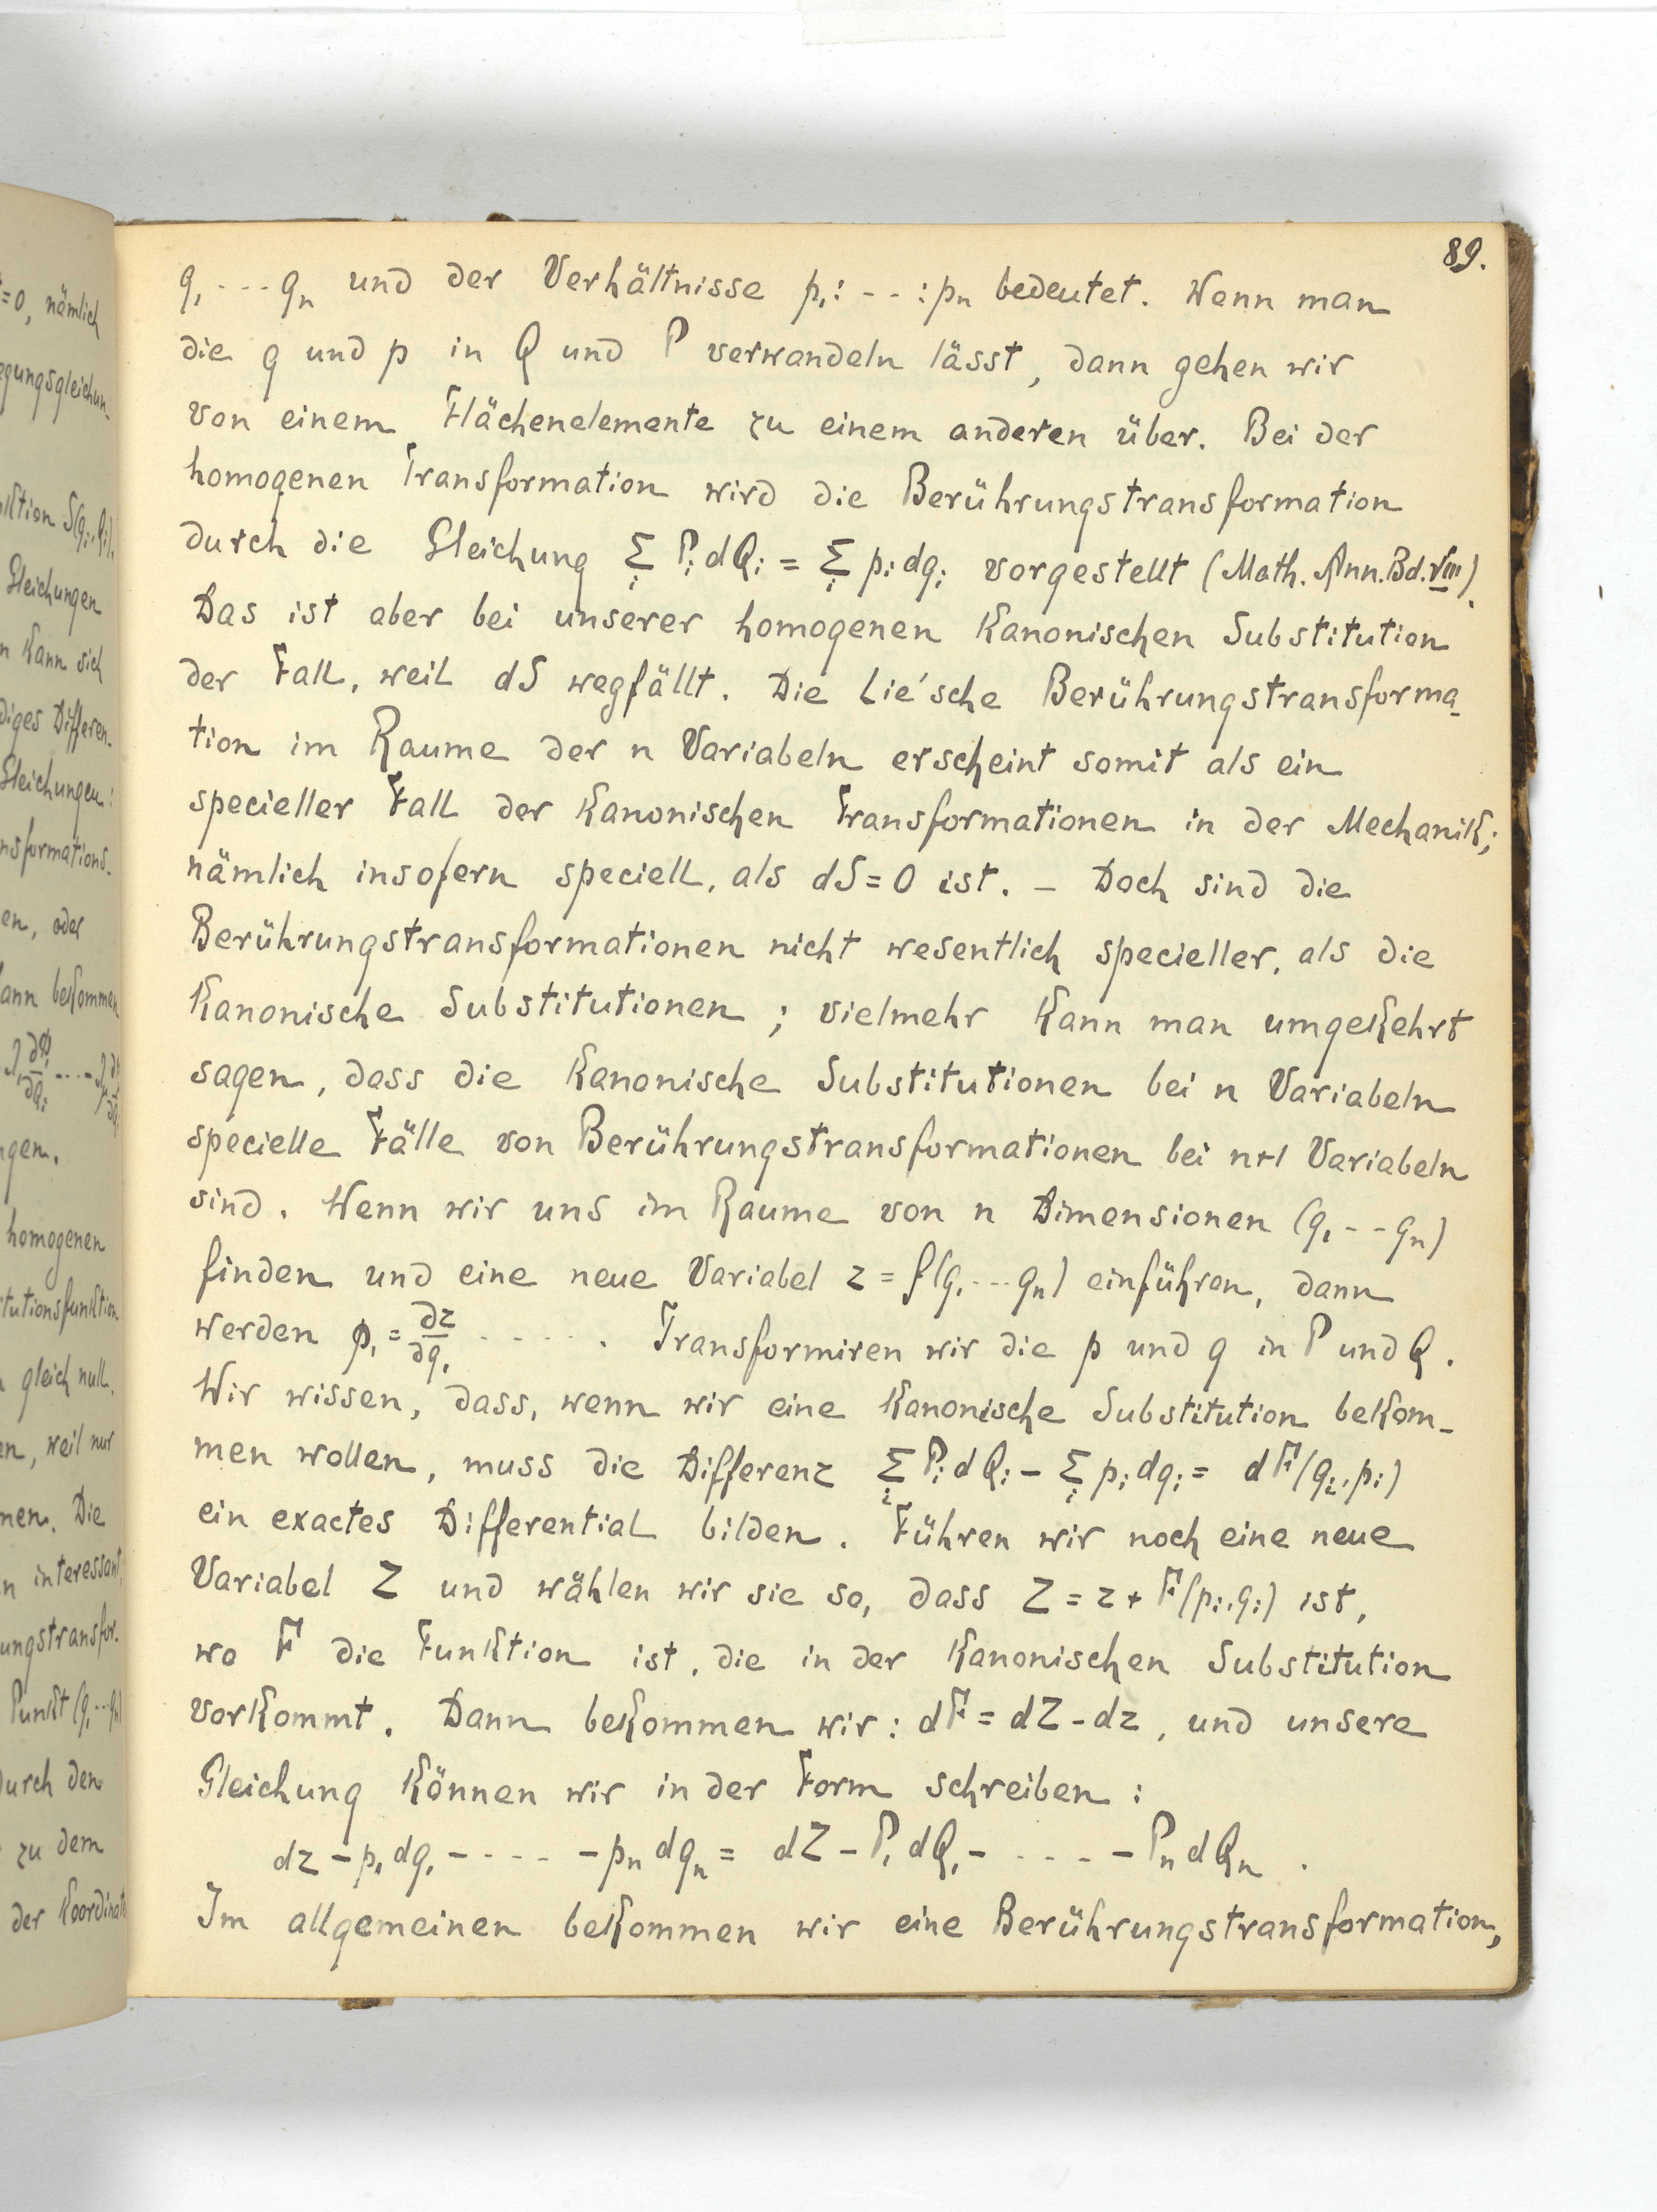 89.
q₁ --- qₙ und der Verhältnisse p₁: -- :pₙ bedeutet. Wenn man
die q und p in Q und P verwandeln lässt, dann gehen wir
von einem Flächenelemente zu einem anderen über. Bei der
homogenen Transformation wird die Berührungstransformation
durch die Gleichung Σᵢ Pᵢ dQᵢ = Σᵢ pᵢ dqᵢ vorgestellt (Math. Ann. Bd. VIII).
Das ist aber bei unserer homogenen Kanonischen Substitution
der Fall, weil dS wegfällt. Die Lie'sche Berührungstransforma-
tion im Raume der n Variabeln erscheint somit als ein
specieller Fall der Kanonischen Transformationen in der Mechanik;
nämlich insofern speciell, als dS = 0 ist. – Doch sind die
Berührungstransformationen nicht wesentlich specieller, als die
Kanonische Substitutionen ; vielmehr Kann man umgekehrt
sagen, dass die Kanonische Substitutionen bei n Variabeln
specielle Fälle von Berührungstransformationen bei n+1 Variabeln
sind. Wenn wir uns im Raume von n Dimensionen (q₁ -- qₙ)
finden und eine neue Variabel z = f(q₁ --- qₙ) einführen, dann
werden p₁ = ∂z/∂q₁ ------ . Transformiren wir die p und q in P und Q.
Wir wissen, dass, wenn wir eine Kanonische Substitution bekom-
men wollen, muss die Differenz Σᵢ Pᵢ dQᵢ – Σᵢ pᵢ dqᵢ = dF(qᵢ, pᵢ)
ein exactes Differential bilden. Führen wir noch eine neue
Variabel Z und wählen wir sie so, dass Z = z + F(pᵢ, qᵢ) ist,
wo F die Funktion ist, die in der Kanonischen Substitution
vorkommt. Dann bekommen wir: dF = dZ – dz, und unsere
Gleichung können wir in der Form schreiben :
dz – p₁ dq₁ – ---- – pₙ dqₙ = dZ – P₁ dQ₁ – ---- – Pₙ dQₙ .
Im allgemeinen bekommen wir eine Berührungstransformation,